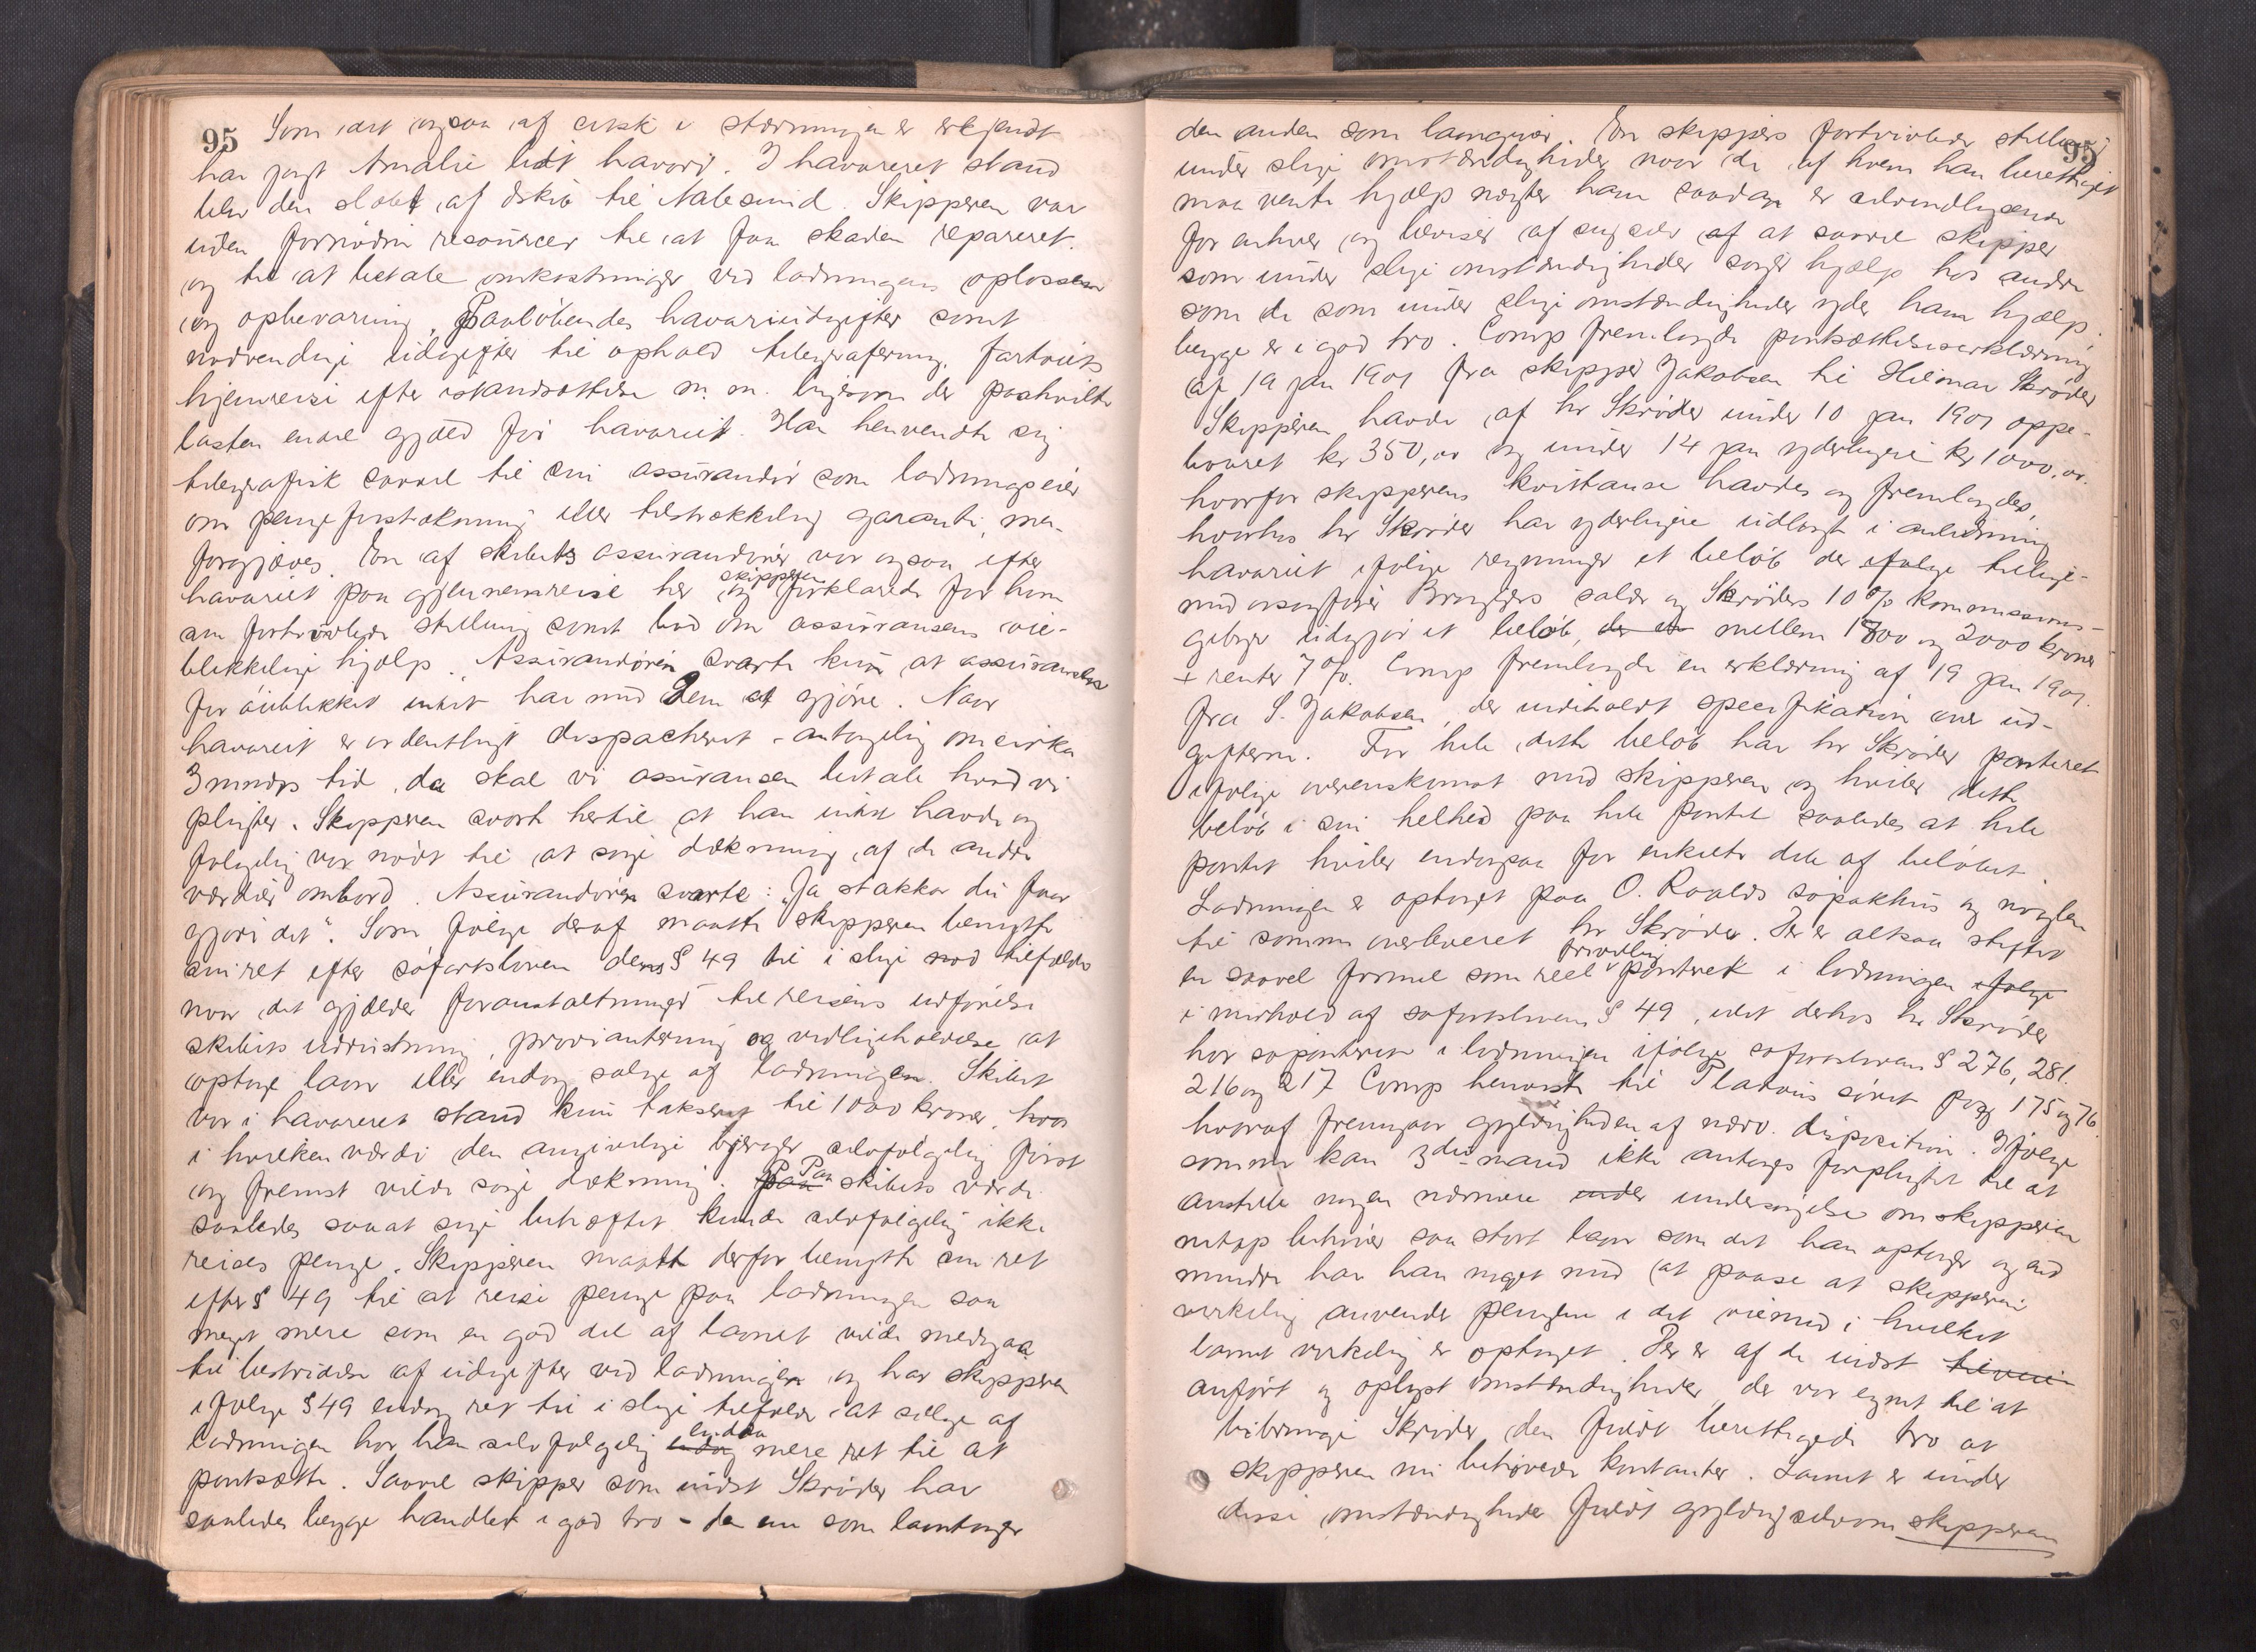 95 Som det ogsaa af citsk i stævningen er erkjendt
har jagt Amalie lidt havari. I havareret stand
blev den slæbt af dskib til Aalesund. Skipperen var
uden fornødne resourcer til at faa skaden repareret.
og til at betale omkostninger ved ladningens oplossen
og opbevaring, Paaløbendes havariudgifter samt
nødvendige udgifter til ophold telegrafering, fartøiets
hjemreise efter istandsættelse m. m. ligesom der paahvilte
lasten endel gjæld før havariet. Han henvendte sig
telegrafisk saavel til sin assurandør som ladningseier
om pengeforstrækning eller tilstrækkelig garanti, men
forgjæves. En af skibets assurandører var ogsaa efter
havariet paa gjennemreise her og skipperen forklarede for ham
sin fortvivlede stilling samt bad om assuransens øie-
blikkelige hjælp. Assurandøren svarte kun at assuransen
for øieblikket intet har med dem at gjøre. Naar
havariet er ordentligt dispacheret - antagelig om cirka
3 mndrs tid, da skal vi assuransen betale hvad vi
pligter. Skipperen svarte hertil at han intet havde og
følgelig var nødt til at søge dækning af de andre
værdier ombord. Assurandøren svarte: "Ja stakkar du faar
gjøre det". Som følge deraf maatte skipperen benytte
sin ret efter søfartsloven dens § 49 til i slige nødtilfælde
naar det gjælder foranstaltninger til reisens udførelse
skibets udrustning, proviantering og vedligeholdelse at
optage laan eller endog sælge af ladningen. Skibet
var i havareret stand kun takseret til 1000 kroner, hvor
i hvilken værdi den angivelige bjerger selvfølgelig først
og fremst vilde søge dækning. Paa Paa skibets værdi
saaledes saa at sige beheftet kunde selvfølgelig ikke
reises penge. Skipperen maatte derfor benytte sin ret
efter § 49 til at reise penge paa ladningen saa
meget mere som en god del af laanet vilde medgaa
til bestridelse af udgifter ved ladningen og har skipperen
ifølge § 49 endog ret til i slige tilfælde at sælge af
ladningen har han selvfølgelig endog endda mere ret til at
pantsætte. Saavel skipper som indst Skrøder har
saaledes begge handlet i god tro - den ene som laantager
95
den anden som laangiver. En skippers fortvivlede stilling
under slige omstændigheder naar de af hvem han berettiget
maa vente hjælp nægter ham saadan er selvindlysende
for enhver og beviser af sig selv af at saavel skipper
som under slige omstændigheder søger hjælp hos andre
som de som under slige omstændigheder yder ham hjælp,
begge er i god tro. Comp fremlagde pantsættelseserklæring
af 19 jan 1901 fra skipper Jakobsen til Hilmar Skrøder
Skipperen havde af hr Skrøder under 10 jan 1901 oppe-
baaret kr 350,00 og under 14 jan yderligere kr 1000,00.
hvorfor skipperens kvittanse havdes og fremlagdes,
hvorhos hr Skrøder har yderligere udlagt i anledning
havariet ifølge regninger et beløb der ifølge tillige-
med sagfører Brugjers salær og Skrøders 10 % kommissions-
gebyr udgjør et beløb, der et mellem 1800 og 2000 kroner
+ renter 7 %. Comp fremlagde en erklæring af 19 jan 1901.
fra S. Jakobsen, der indeholdt specifikation over ud-
gifterne. For hele dette beløb har hr Skrøder panteret
ifølge overenskomst med skipperen og hviler dette
beløb i sin helhed paa hele pantet saaledes at hele
pantet hviler endogsaa for enkelte dele af beløbet.
Ladningen er optaget paa O. Roalds søpakhus og nøglen
til samme overleveret hr Skrøder. Der er altsaa stiftet
en saavel formel som reel frivillig pantret i ladningen ifølge
i medhold af søfartslovens § 49, idet derhos hr Skrøder
har søpanteret i ladningen ifølge søfartslovens § 276, 281.
216 og 217 Comp henviste til Platous søret pag 175 og 76
hvoraf fremgaar gyldigheden af nærv. disposition. Ifølge
samme kan 3die-mand ikke antages forpligtet til at
anstille nogen nærmere under undersøgelse om skipperen
netop behøver saa stort laan som det han optager og end
mindre har han noget med at paase at skipperen
virkelig anvender pengene i det øiemed i hvilket
laanet virkelig er optaget. Der er af de indst
anført og oplyst omstændigheder, der var egnet til at
bibringe Skrøder den fuldt berettigede tro at
skipperen nu behøvede kontanter. Laanet er under
disse omstændigheder fuldt gyldig selvom skipperen